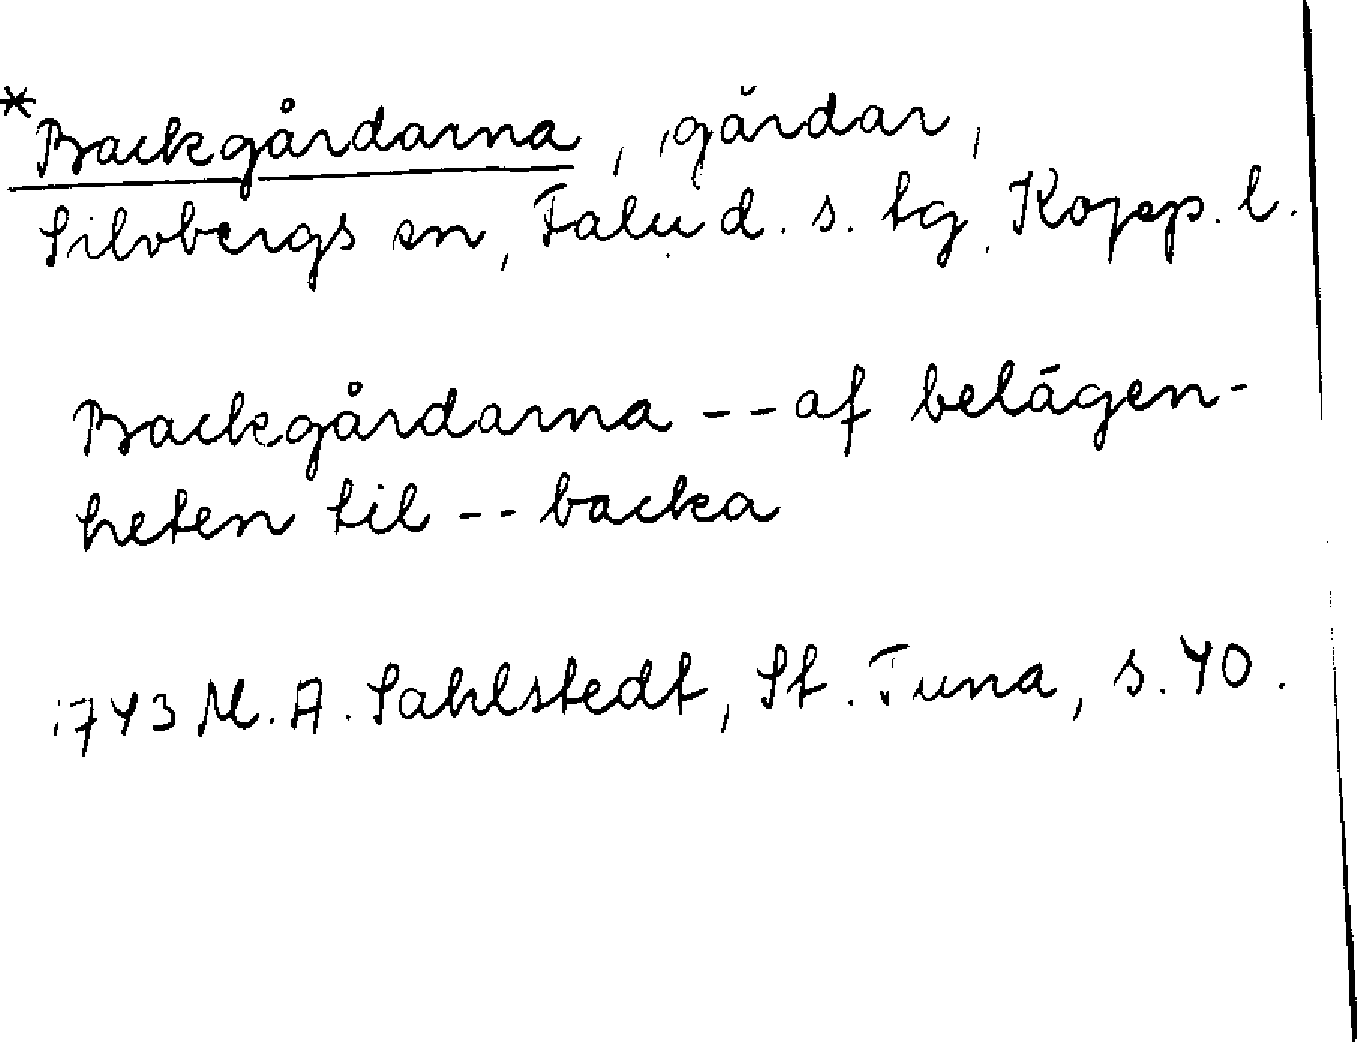 *Backgårdarna, gårdar,
Silvbergs sn, Falu d. s. tg. Kopp. l.
Backgårdarna -- af belägen-
heten til -- backa
1743 M. A. Sahlstedt, St. Tuna, s. 40.